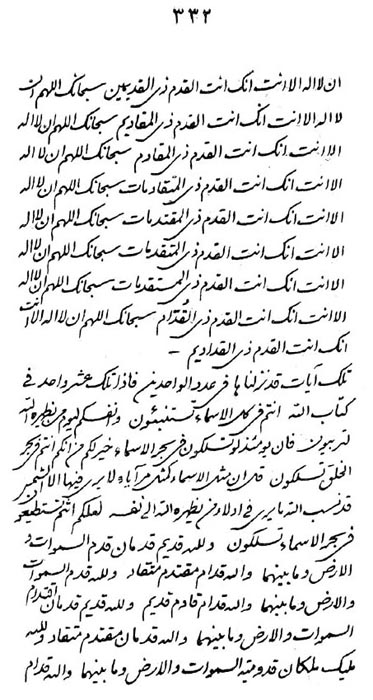 ٣٣٢
ان لا اله الا انت انک انت القدم ذی القدیمین سبحانک اللهم ان
لا اله الا انت انک انت القدم ذی المقادیم سبحانک اللهم ان لا اله
الا انت انک انت القدم ذی المقادم سبحانک اللهم ان لا اله
الا انت انک انت القدم ذی المتقادمات سبحانک اللهم ان لا اله
الا انت انک انت القدم ذی المقتدمات سبحانک اللهم ان لا اله
الا انت انک انت القدم ذی المتقدمات سبحانک اللهم ان لا اله
الا انت انک انت القدم ذی المستقدمات سبحانک اللهم ان لا اله
الا انت انک انت القدم ذی القُدّام سبحانک اللهم ان لا اله الا انت
انک انت القدم ذی القدادیم –
تلک آیات قد نزلناها فی عدد الواحدین فاذا تلک عشر واحد فی
کتاب الله انتم فی کل الاسماء تستنبئون و انفسکم لیوم من یظهره الله
لتربون فان یومئذ لو تسلکون فی بحر الاسماء خیر لکم من انکم انتم فی بحر
الخلق تسلکون قل ان مثل الاسماء کمثل مرآیاء لا یری فیها الا الشمس
قد نسب الله ما یری فی ادلاء من یظهره الله الی نفسه لعلکم انتم تستطیعو
فی بحر الاسماء تسلکون ولله قدیم قدمان قدم السموات و
الارض وما بینهما والله قدام مقتدم متقاد ولله قدم السموات
والارض وما بینهما والله قدام قادم قدیم ولله قدیم قدمان اقتدام
السموات والارض وما بینهما والله قدمان مقتدم متقاد ولله
ملیک ملکان قدومیة السموات والارض وما بینهما والله قدام